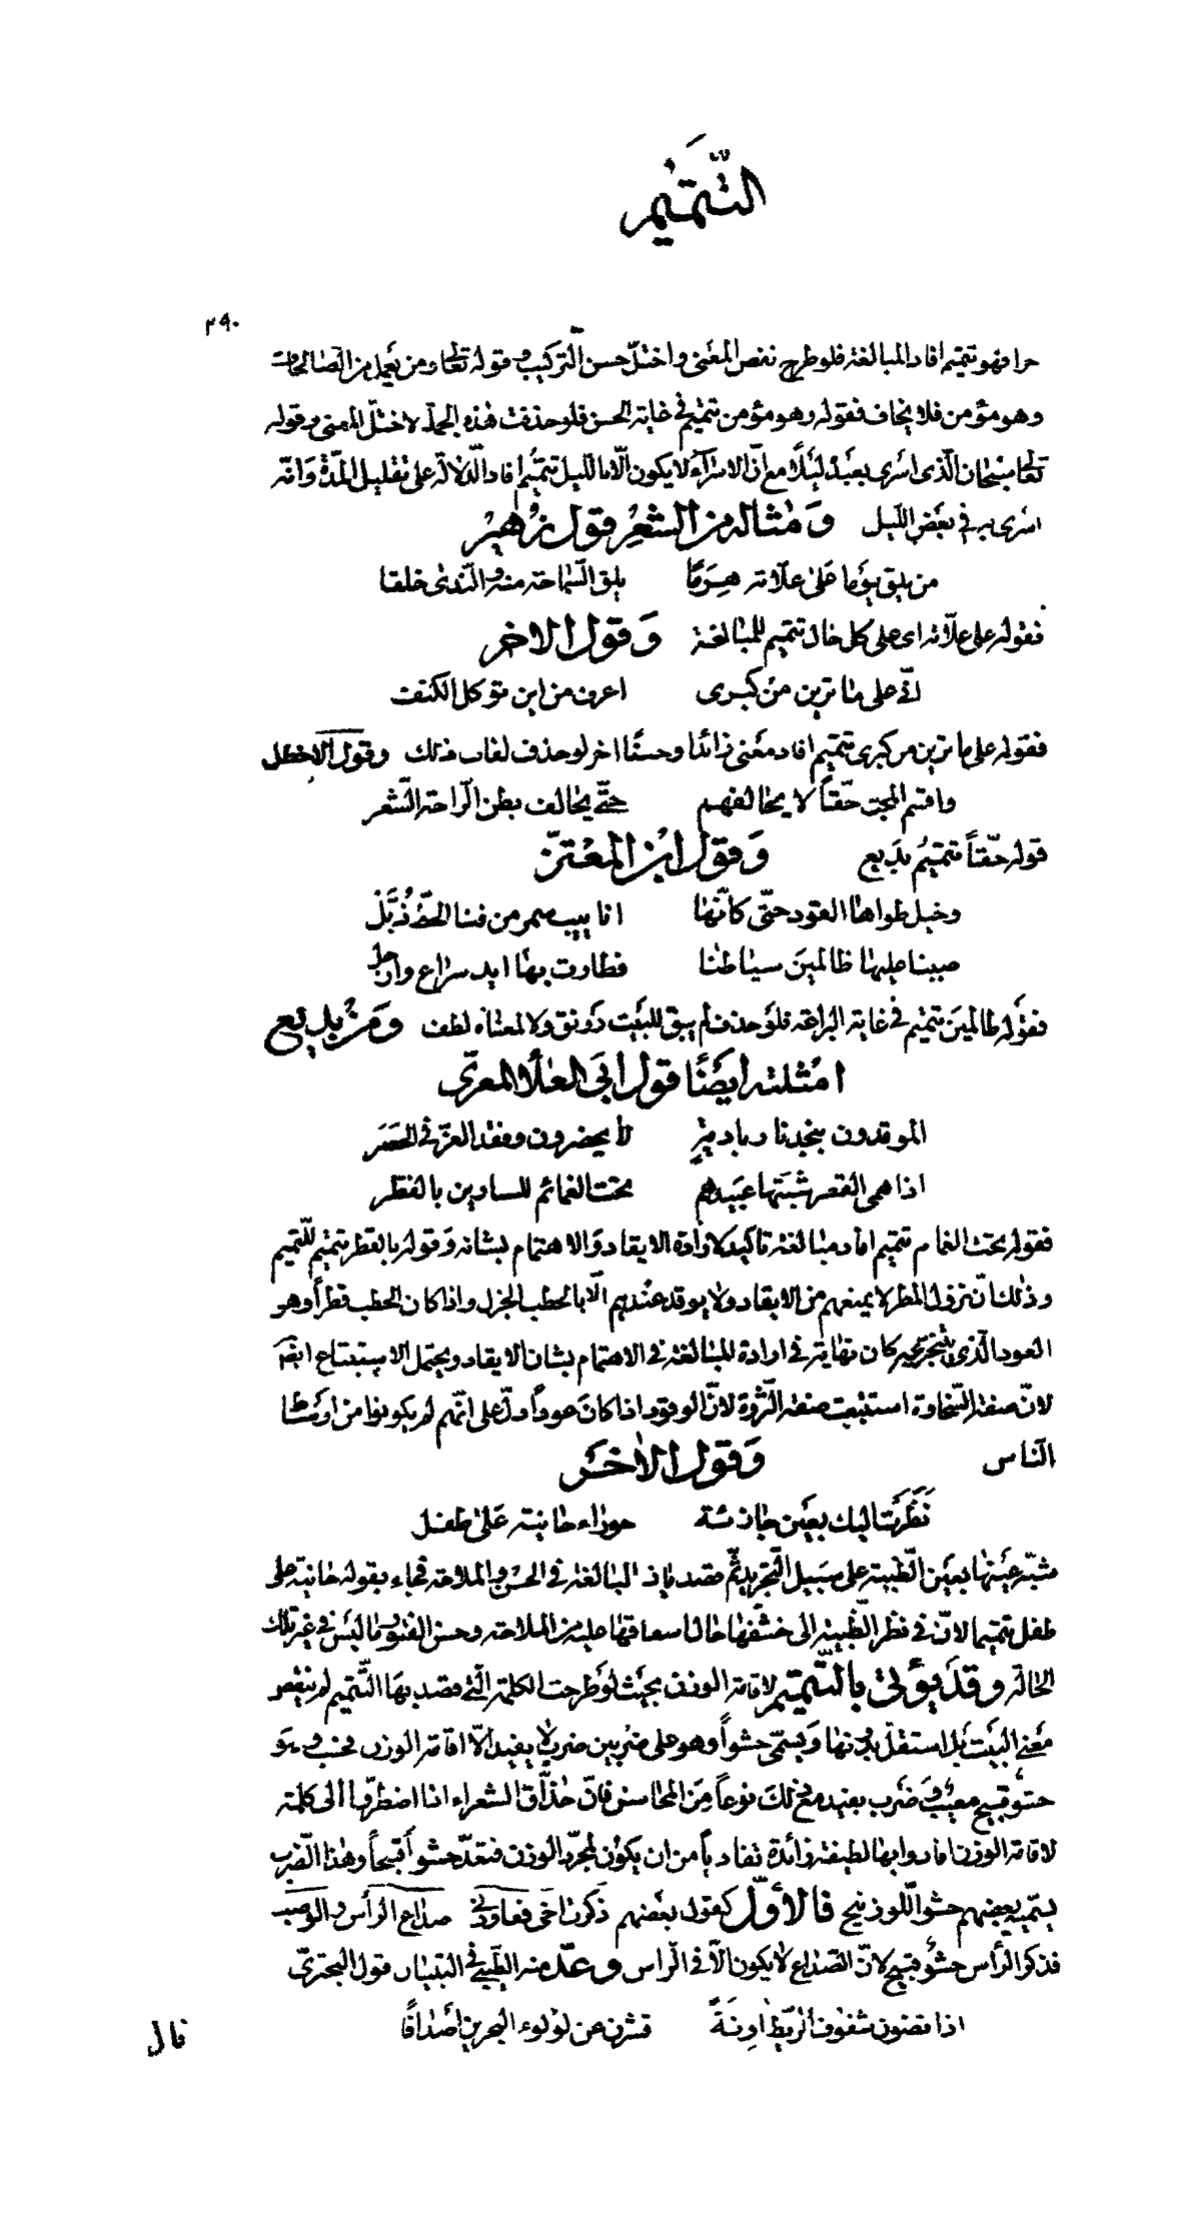 التَّتميم
٢٩٠
حرا فهو تتميم افاد المبالغة فلو طرح نقص المعنى واختلّ حسن التركيب وقوله تعالى ومن يعمل من الصالحات
وهو مؤمن فلا يخاف فقوله وهو مؤمن تتميم في غاية الحسن فلو حذفت هذه الجملة لاختلّ المعنى وقوله
تعالى سبحان الّذى اسرى بعبده ليلًا مع انّ الاسرآء لا يكون الّا بالليل تتميم افاد الدّلالة على تقليل المدّة وانّه
اسرى به في بعض اللّيل ومثاله من الشعر قول زهير
من يلق يومًا على علّاته هرمًا يلق السّماحة منه والنّدى خلقا
فقوله على علّاته اى على كل حال تتميم للمبالغة وقول الاخر
انّي على ما ترين من كبرى اعرف من اين تؤكل الكتف
فقوله على ما ترين من كبرى تتميم افاد معنى زائدًا وحسنًا اخر لو حذف لفات ذلك وقول الاخطل
واقسم المجد حقّاً لا يحالفهم حتّى يحالف بطن الرّاحة الشّعر
قوله حقّاً تتميم بديع وقول ابن المعتزّ
وخيل طواها القود حتّى كانّها انابيب سمر من قنا الخطّ ذبّل
صببنا عليها ظالمين سياطنا فطارت بها ايد سراع وارجل
فقوله ظالمين تتميم في غاية البراعة فلو حذف لم يبق للبيت رونق ولا لمعناه لطف ومن بديع
امثلته ايضًا قول ابى العلا المعرّى
الموقدون بنجد نار بادية لا يحضرون وفقد العزّ في الحضر
اذا همى القطر شبّتها عبيدهم تحت الغمائم للسارين بالقطر
فقوله تحت الغمام تتميم افاد مبالغة تاكيدًا لارادة الايقاد والاهتمام بشانه وقوله بالقطر تتميم للتتميم
وذلك انّ نزول المطر لا يمنعهم من الايقاد ولا يوقد عندهم الّا بالحطب الجزل واذا كان الحطب قطرأ وهو
العود الّذى يتبخّر به كان نهاية في ارادة المبالغة في الاهتمام بشان الايقاد ويحتمل الاستتباع ايضًا
لانّ صفة السّخاوة استتبعت صفة الثّروة لانّ الوقود اذا كان عوداً دلّ على انّهم لم يكونوا من اوساط
النّاس وقول الاخر
نظرت اليك بعين جازئة حوراء حانية على طفل
شبّه عينها بعين الظّبية على سبيل التّجريد ثمّ قصد زيادة المبالغة في الحسن والملاحة فجاء بقوله حانية على
طفل تتميما لانّ في نظر الظّبية الى خشفها حال اسعافها عليه من الملاحة وحسن الفتور ما ليس في غير تلك
الحالة وقد يؤتى بالتّتميم لاقامة الوزن بحيث لو طرحت الكلمة الّتي قصد بها التّتميم لم ينقص
معنى البيت بل استقلّ بدونها ويسمّى حشواً وهو على ضربين ضرب لا يفيد الّا اقامة الوزن فحسب وهو
حشو قبيح معيب وضرب يفيد مع ذلك نوعاً من المحاسن فانّ حذّاق الشعراء اذا اضطرّوا الى كلمة
لاقامة الوزن افادوا بها لطيفة زائدة تفادياً من ان يكون لمجرّد الوزن فتعدّ حشواً قبيحاً وهذا الضّرب
يسمّيه بعضهم حشو اللّوزينج فالاوّل كقول بعضهم ذكرت اخى فعاودنى صداع الرأس والوصب
فذكر الرأس حشو قبيح لانّ الصّداع لا يكون الّا في الرأس وعدّ منه الطّيبي في التبيان قول البحترىّ
اذا نضون شفوف الرّيط اونةً قشرن عن لؤلوء البحرين أصدافًا
قال